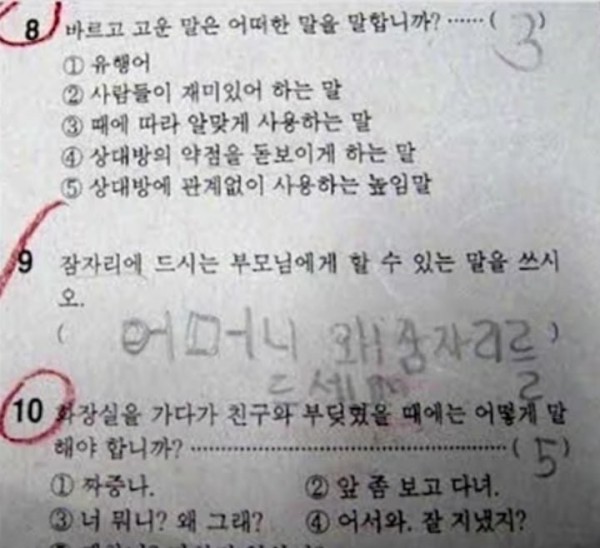 8 바르고 고운 말은 어떠한 말을 말합니까? ······( 3 )
① 유행어
② 사람들이 재미있어 하는 말
③ 때에 따라 알맞게 사용하는 말
④ 상대방의 약점을 돋보이게 하는 말
⑤ 상대방에 관계없이 사용하는 높임말
9 잠자리에 드시는 부모님에게 할 수 있는 말을 쓰시
오.
( 어머니 왜 잠자리를 )
드세요
10 화장실을 가다가 친구와 부딪혔을 때에는 어떻게 말
해야 합니까? ······( 5 )
① 짜증나.
② 앞 좀 보고 다녀.
③ 너 뭐니? 왜 그래?
④ 어서와. 잘 지냈지?